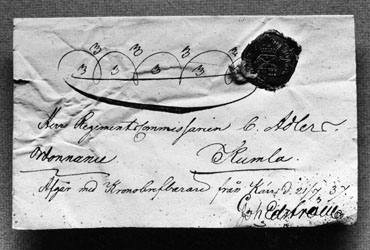 Herr Regimentscommissarien C. Adler
Ordonnance Kumla.
Afgår med Kronobrefbärare från d. 21/7 37